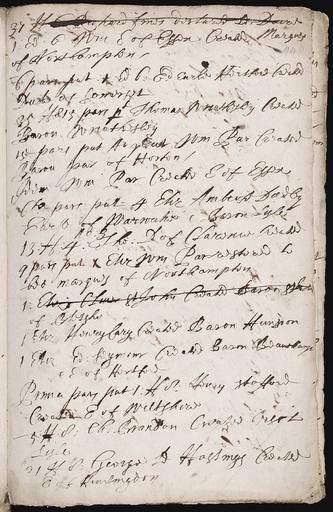 27 H 8 Richard Jones declared
1 Ed 6 Wm E of Essex Created Marques
of Northampton
6 pars put 1 Ed 6 Ed Earle Hertford Created
Duke of Somerset
35 H 8 15 pars pt Thomas Wriothsley Created
Baron Wriothsley
15 pars put Wm Par Created
Baron par of Horton
Wm Par Created E of Essex
pars put 4 Eliz Ambrose Dudly
E of Warwicke & Baron Lisle
13 H 4 Tho: D of Clarence Created
9 pars put 1 Eliz Wm Par restored to
bee marques of Northampton
1 Eliz Oliver St John Created Baron
of Bletsho
1 Eliz Henry Cary Created Baron Hunsdon
1 Eliz Ed Seymour Created Baron Beauchamp
E of Hertford
Prima pars put 1 H 8 Henry Stafford
Created E of Wiltshire
5 H 8 Ch Brandon Created Viscot
Lisle
21 H 8 George Hastings Created
E of Huntingdon